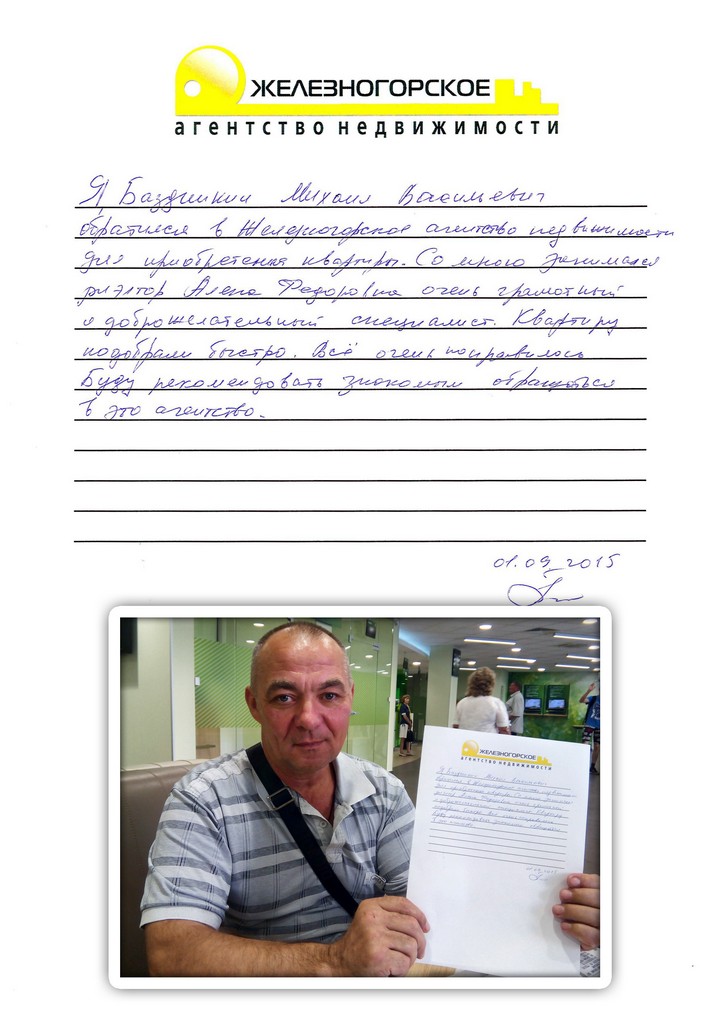 ЖЕЛЕЗНОГОРСКОЕ
агентство недвижимости
Я Михаил Васильевич
обратился в Железногорское агентство недвижимости
для приобретения квартиры. Со мною занимался
риэлтор Алена Федоровна очень грамотный
и доброжелательный специалист. Квартиру
подобрали быстро. Всё очень понравилось
Буду рекомендовать знакомым обращаться
в это агентство.
01.09.2015
ЖЕЛЕЗНОГОРСКОЕ
агентство недвижимости